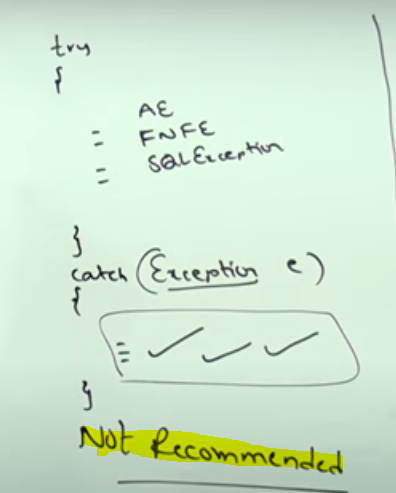 try
{
AE
FNFE
SQLException
}
catch (Exception e)
{
}
Not Recommended